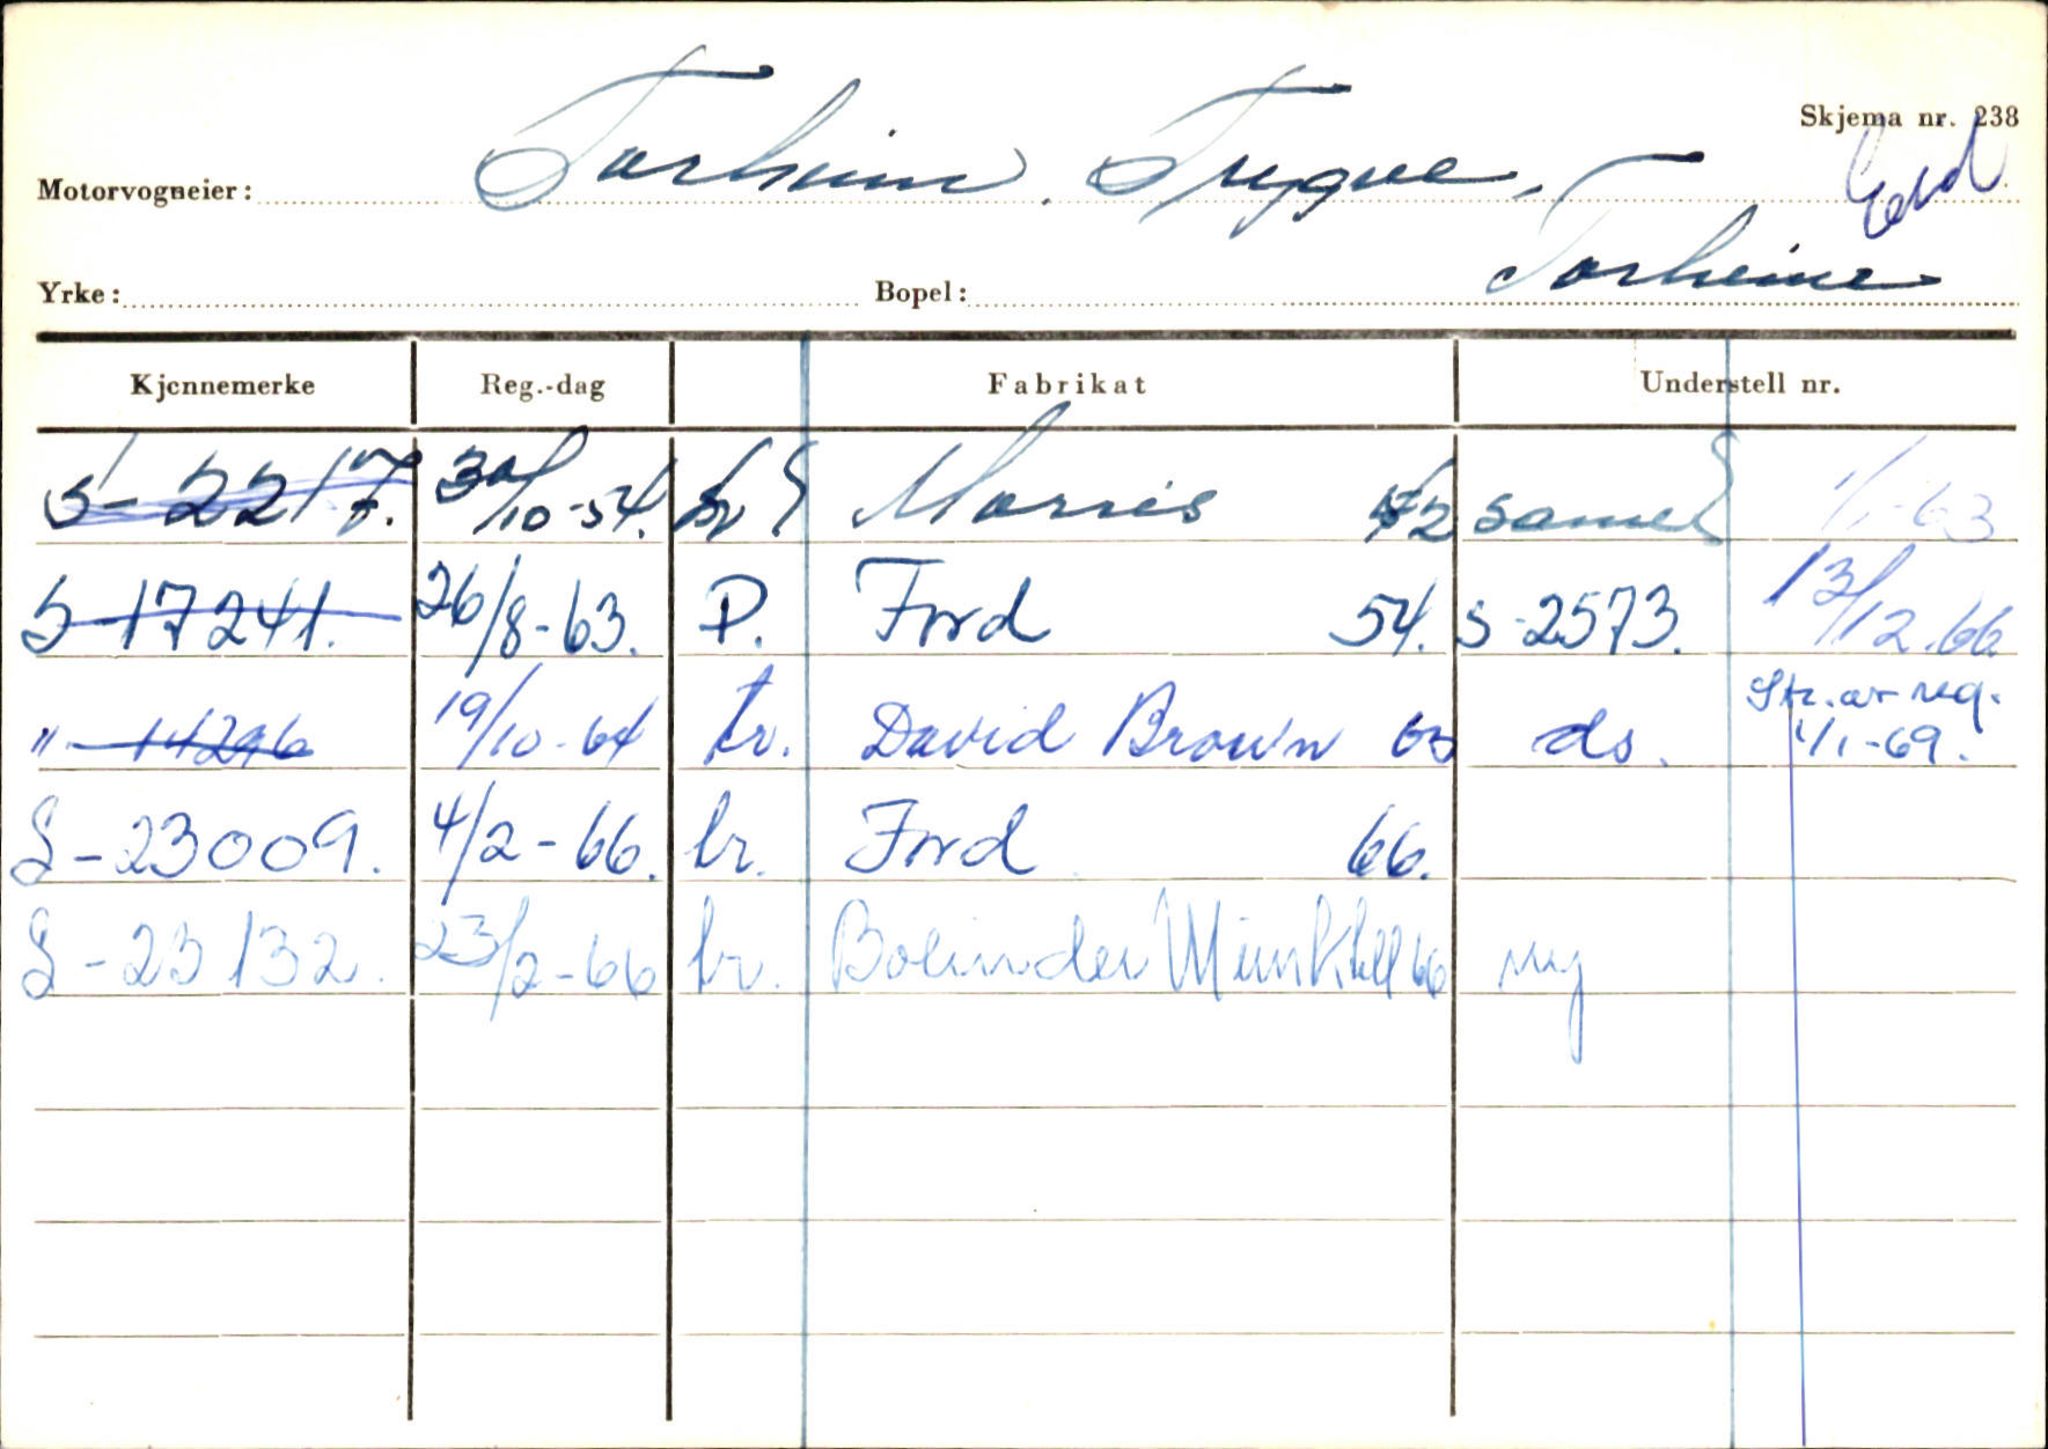 Skjema nr. 238
Eid
Motorvogneier: Torheim, Trygve,
Yrke: Bopel: Torheim
Kjennemerke Reg.-dag Fabrikat Understell nr.
S-2217. 30/10-54. Morris samel 1/1-63
S-17241. 26/8-63. P. Ford 54. S-2573. 13/12.66.
"-14296 19/10-64 tr. David Brown 63 ds. Str. av reg. 1/1-69.
S-23009. 4/2-66. tr. Ford 66.
S-23132. 23/2-66 tr. Bolinder Munktell 66 ny